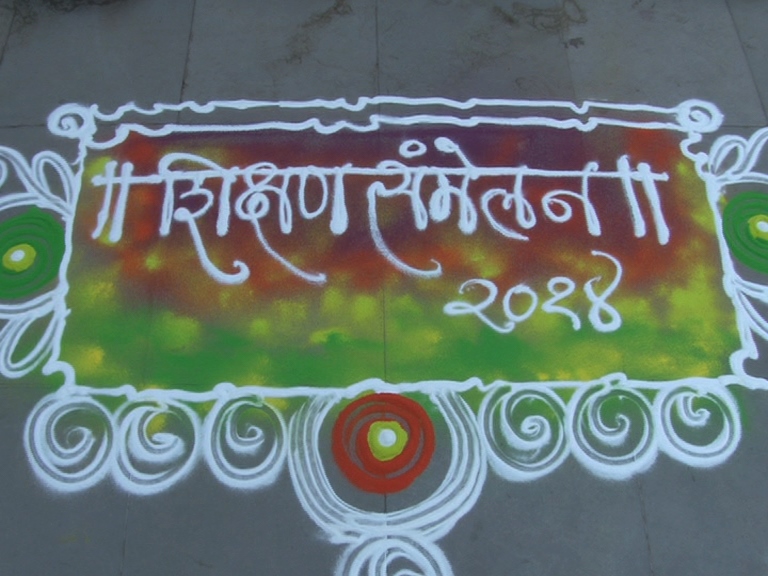 ॥ शिक्षण संमेलन ॥
२०१४